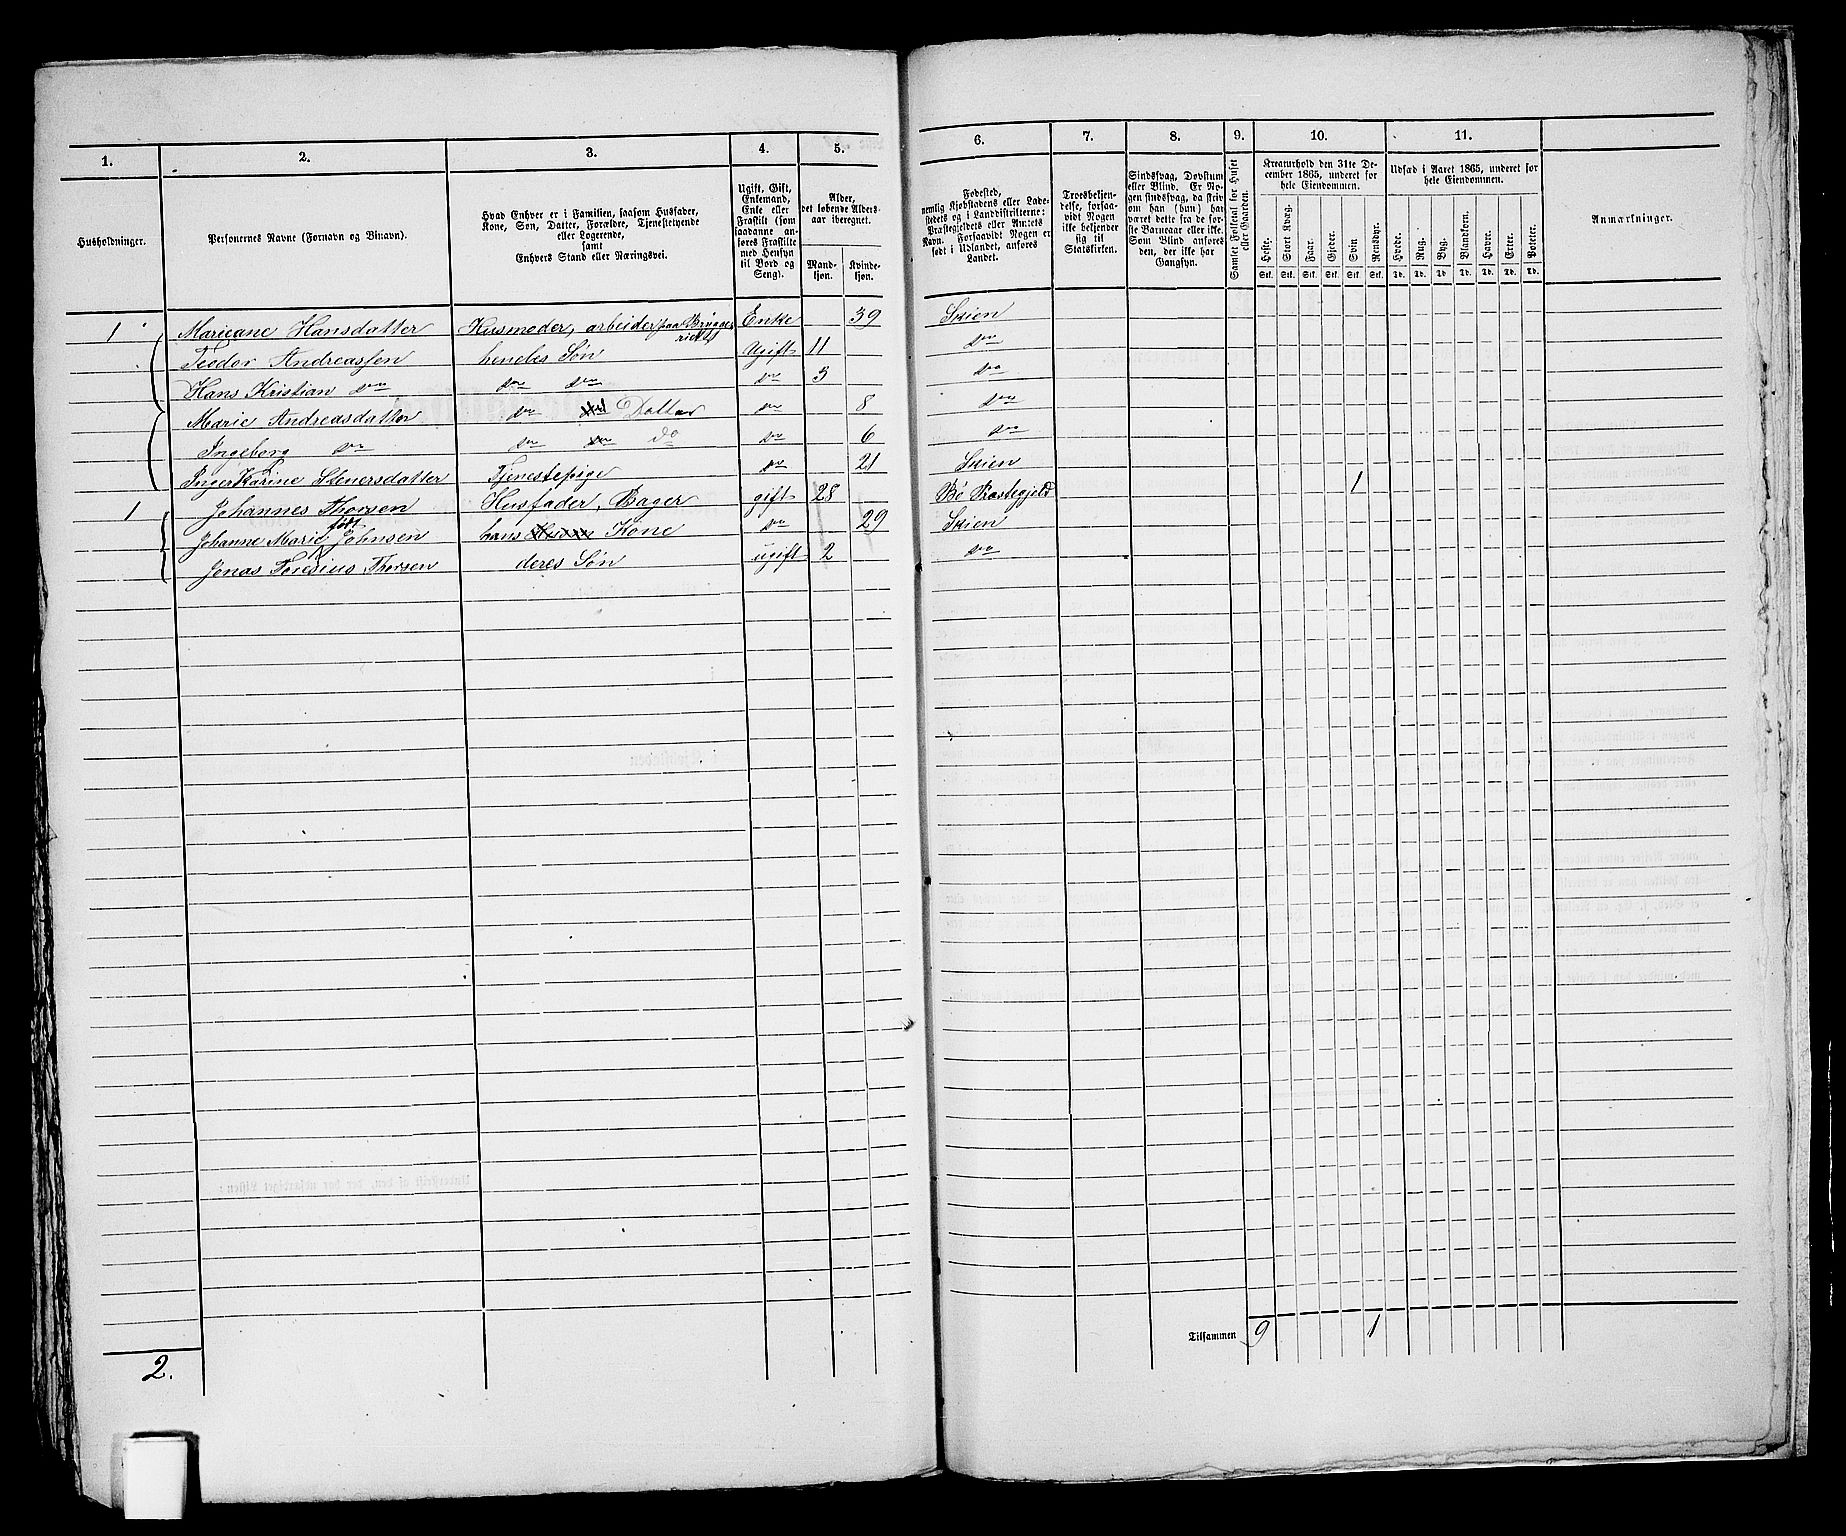 1. 2. 3. 4. 5. 6. 7. 8. 9. 10. 11.
Husholdninger.
Personernes Navne (Fornavn og Binavn).
Hvad Enhver er i Familien, saasom Husfader,
Kone, Søn, Datter, Forældre, Tjenestetyende
eller Logerende,
samt
Enhvers Stand eller Næringsvei.
Ugift, Gift,
Enkemand,
Enke eller
Fraskilt (som
saadanne an-
føres Fraskilte
med Hensyn
til Bord og
Seng).
Alder,
det løbende Alders-
aar iberegnet.
Mand-
kjøn.
Kvinde-
kjøn.
Fødested,
nemlig Kjøbstadens eller Lade-
stedets og i Landdistrikterne:
Præstegjeldets eller Annexets
Navn. Forsaavidt Nogen er
født i Udlandet, anføres
Landet.
Troesbekjen-
delse, forsaa-
vidt Nogen
ikke bekjender
sig til
Statskirken.
Sindssvag, Døvstum
eller Blind. Er No-
gen sindssvag, da skriv
om han (hun) har
været dette fra de før-
ste Barneaar eller ikke.
Som Blind anføres
den, der ikke har
Gangsyn.
Samlet Folketal for Huset
eller Gaarden.
Kreaturhold den 31te De-
cember 1865, underet for
hele Eiendommen.
Heste. Stort Kvæg. Faar. Gjeder. Svin Rensdyr.
Stk. Stk. Stk. Stk. Stk. Stk.
Udsæd i Aaret 1865, underet for
hele Eiendommen.
Hvede. Rug. Byg. Blandkorn. Havre. Erter. Poteter.
Td. Td. Td. Td. Td. Td. Td.
Anmærkninger.
1 Mareane Hansdatter Husmoder, arbeider paa Brygge- Enke 39 Skien
riet
Teodor Andreassen hendes Søn Ugift 11 do
Hans Kristian do do do do 3 do
Marie Andreasdatter do Datter do 8 do
Ingeborg do do do do 6 do
Inger Karine Stenersdatter Tjenestepige do 21 Skien
1 Johannes Thorsen Husfader, Bager gift 28 Bø Præstegjeld 1
født
Johanne Marie Johnsen hans Kone do 29 Skien
Jonas Thorsen deres Søn ugift 2 do
Tilsammen 9 1
2.